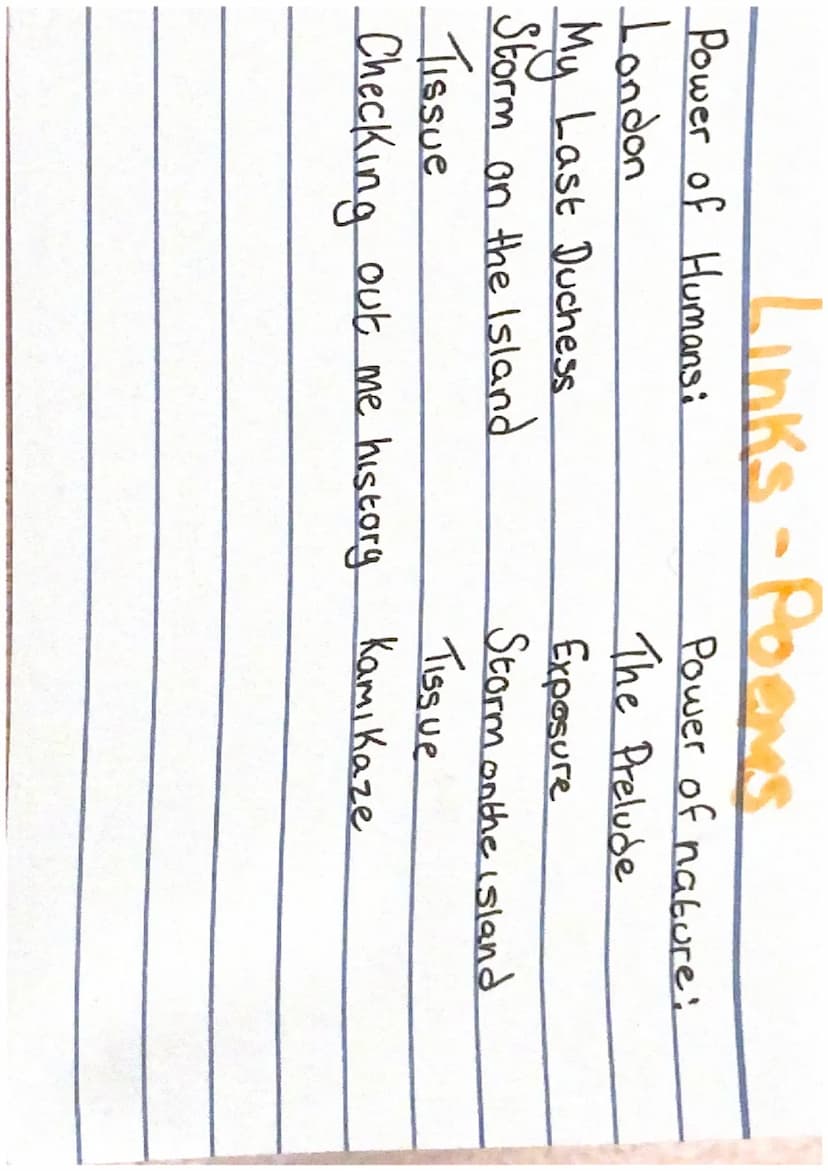 Links - Poems
Power of Humans: Power of nature:
London The Prelude
My Last Duchess Exposure
Storm on the Island Storm on the island
Tissue Tissue
Checking out me history Kamikaze